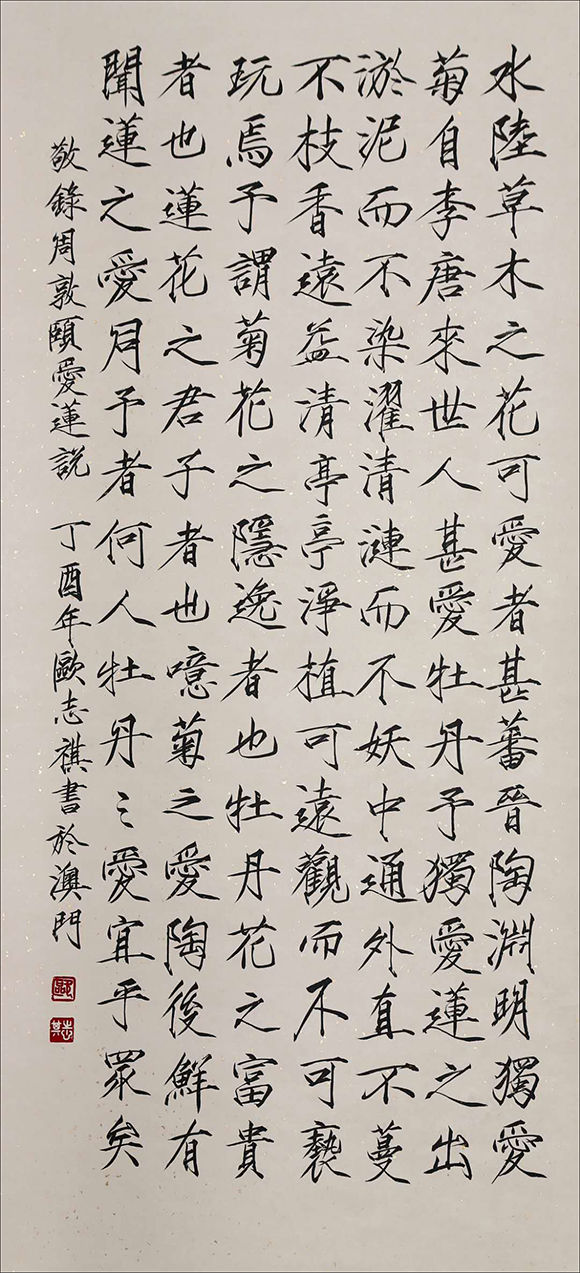 水陸草木之花可愛者甚蕃晉陶淵明獨愛
菊自李唐來世人甚愛牡丹予獨愛蓮之出
淤泥而不染濯清漣而不妖中通外直不蔓
不枝香遠益清亭亭淨植可遠觀而不可褻
玩焉予謂菊花之隱逸者也牡丹花之富貴
者也蓮花之君子者也噫菊之愛陶後鮮有
聞蓮之愛同予者何人牡丹之愛宜乎眾矣
敬錄周敦頤愛蓮說 丁酉年歐志祺書於澳門
歐
志其